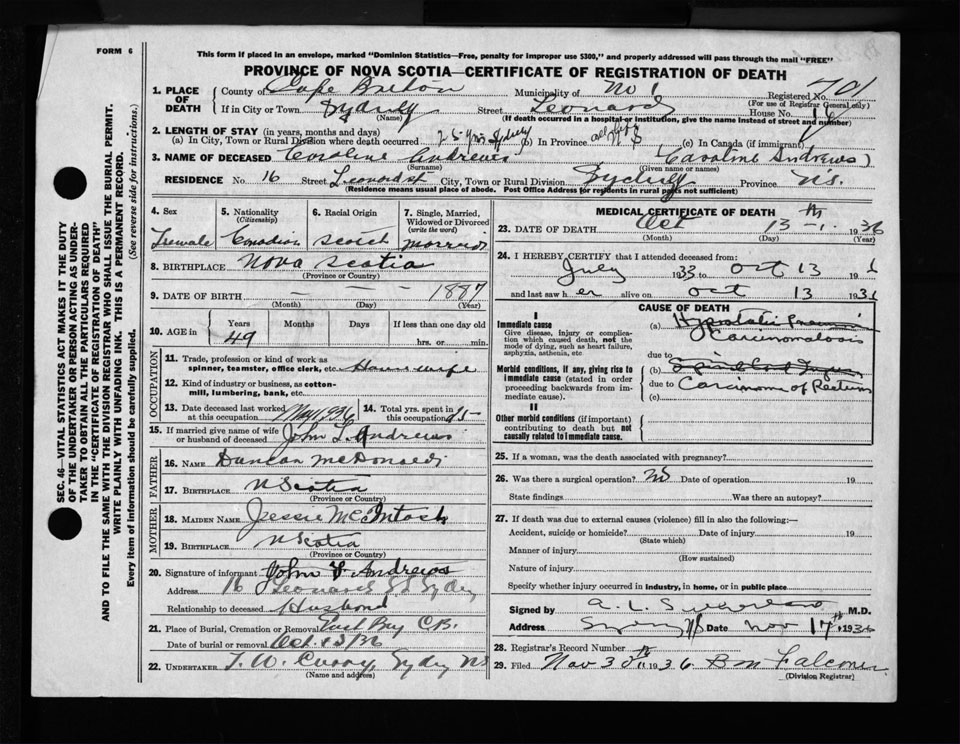 FORM 6
This form if placed in an envelope, marked "Dominion Statistics—Free, penalty for improper use $300," and properly addressed will pass through the mail "FREE"
PROVINCE OF NOVA SCOTIA—CERTIFICATE OF REGISTRATION OF DEATH
SEC. 46—VITAL STATISTICS ACT MAKES IT THE DUTY
OF THE UNDERTAKER OR PERSON ACTING AS UNDER-
TAKER TO OBTAIN ALL THE PARTICULARS REQUIRED
IN THE "CERTIFICATE OF REGISTRATION OF DEATH"
AND TO FILE THE SAME WITH THE DIVISION REGISTRAR WHO SHALL ISSUE THE BURIAL PERMIT.
WRITE PLAINLY WITH UNFADING INK. THIS IS A PERMANENT RECORD.
Every item of information should be carefully supplied. (See reverse side for instructions.)
1. PLACE OF DEATH County of Cape Breton Municipality of No 1 Registered No. 701
(For use of Registrar General only)
If in City or Town Sydney Street Leonard House No. 16
(Name) (If death occurred in a hospital or institution, give the name instead of street and number)
2. LENGTH OF STAY (in years, months and days)
(a) In City, Town or Rural Division where death occurred 25 yrs Sydney (b) In Province all life (c) In Canada (if immigrant)
3. NAME OF DECEASED Caroline Andrews (Caroline Andrews)
(Surname) (Given name or names)
RESIDENCE No. 16 Street Leonard st City, Town or Rural Division Sydney Province N.S.
(Residence means usual place of abode. Post Office Address for residents in rural parts not sufficient)
4. Sex 5. Nationality (Citizenship) 6. Racial Origin 7. Single, Married, Widowed or Divorced (write the word)
Female Canadian Scotch Married
8. BIRTHPLACE Nova Scotia
(Province or Country)
9. DATE OF BIRTH — — 1887
(Month) (Day) (Year)
10. AGE in Years Months Days If less than one day old
49 hrs. or min.
OCCUPATION
11. Trade, profession or kind of work as
spinner, teamster, office clerk, etc. House wife
12. Kind of industry or business, as cotton-
mill, lumbering, bank, etc.
13. Date deceased last worked at this occupation May 1936 14. Total yrs. spent in this occupation 25
15. If married give name of wife or husband of deceased John L Andrews
FATHER
16. NAME Duncan McDonald
17. BIRTHPLACE N Scotia
(Province or Country)
MOTHER
18. MAIDEN NAME Jessie McIntosh
19. BIRTHPLACE N Scotia
(Province or Country)
20. Signature of informant John L Andrews
Address 16 Leonard St Sydney
Relationship to deceased Husband
21. Place of Burial, Cremation or Removal East Bay C.B.
Date of burial or removal Oct. 15/36
22. UNDERTAKER T. W. Curry, Sydney NS
(Name and address)
MEDICAL CERTIFICATE OF DEATH
23. DATE OF DEATH Oct 13th 1936
(Month) (Day) (Year)
24. I HEREBY CERTIFY that I attended deceased from:
July 1933 to Oct 13 193
and last saw her alive on Oct 13 193
CAUSE OF DEATH
I
Immediate cause
Give disease, injury or complica-
tion which caused death, not the
mode of dying, such as heart failure,
asphyxia, asthenia, etc
(a) Hypostatic Pneumonia
Carcinomatosis
due to
Morbid conditions, if any, giving rise to
immediate cause (stated in order
proceeding backwards from im-
mediate cause).
(b)
due to Carcinoma of Rectum
(c)
II
Other morbid conditions (if important)
contributing to death but not
causally related to immediate cause.
25. If a woman, was the death associated with pregnancy?
26. Was there a surgical operation? No Date of operation 19
State findings Was there an autopsy?
27. If death was due to external causes (violence) fill in also the following:—
Accident, suicide or homicide? Date of injury 19
(State which)
Manner of injury
(How sustained)
Nature of injury
Specify whether injury occurred in industry, in home, or in public place
Signed by A. L. M.D.
Address Sydney NS Date Nov 17th 1936
28. Registrar's Record Number
29. Filed Nov 30th 1936 B M Falconer
(Division Registrar)